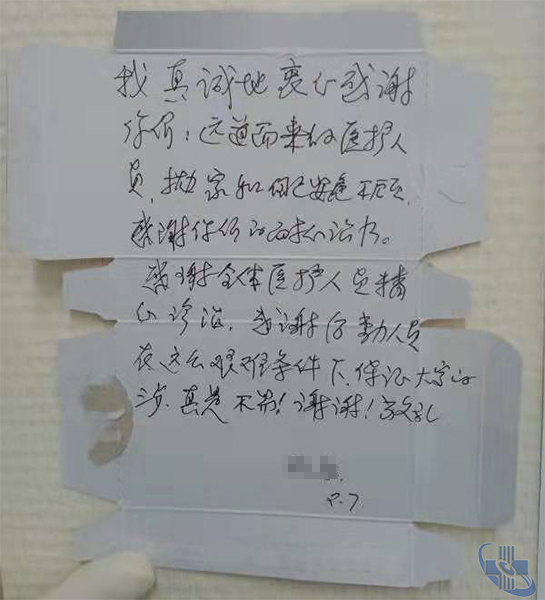 我真诚地衷心感谢
你们：远道而来的医护人
员，抛家和自己安危不顾，
感谢你们的
感谢全体医护人员精
心诊治，感谢后勤人员
在这么艰难条件下，保证大家的
真是不易！谢谢！敬礼
2.7